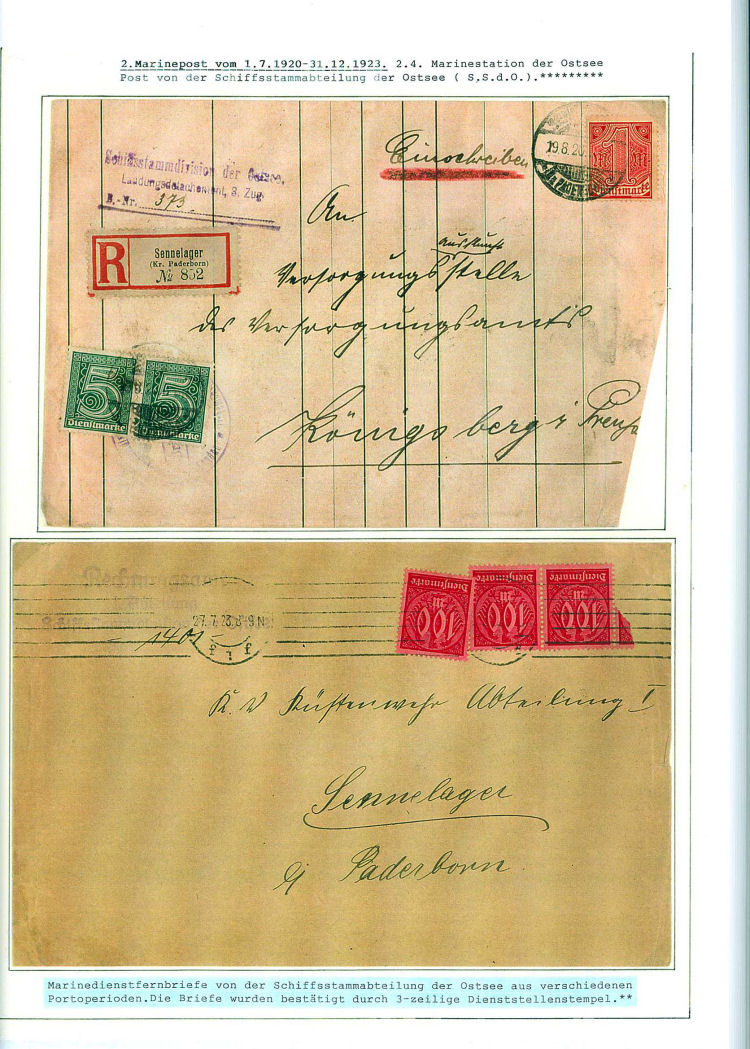 2.Marinepost vom 1.7.1920-31.12.1923. 2.4. Marinestation der Ostsee
Post von der Schiffsstammabteilung der Ostsee ( S.S.d.O.).*********
Schiffsstammdivision der Ostsee.
Landungsdetachement, 3. Zug.
B.-Nr. 373
Einschreiben
19.8.20
1
Dienstmarke
An
R
Sennelager
(Kr. Paderborn)
№ 852
Auskunft
Versorgungsstelle
des Versorgungsamts
Königsberg i Preuß
5
Dienstmarke
5
Dienstmarke
27.7.23.8-9N
1401
Dienstmarke
100
Dienstmarke
100
Dienstmarke
100
K. V Küstenwehr Abteilung I
Sennelager
b/ Paderborn
Marinedienstfernbriefe von der Schiffsstammabteilung der Ostsee aus verschiedenen
Portoperioden.Die Briefe wurden bestätigt durch 3-zeilige Dienststellenstempel.**